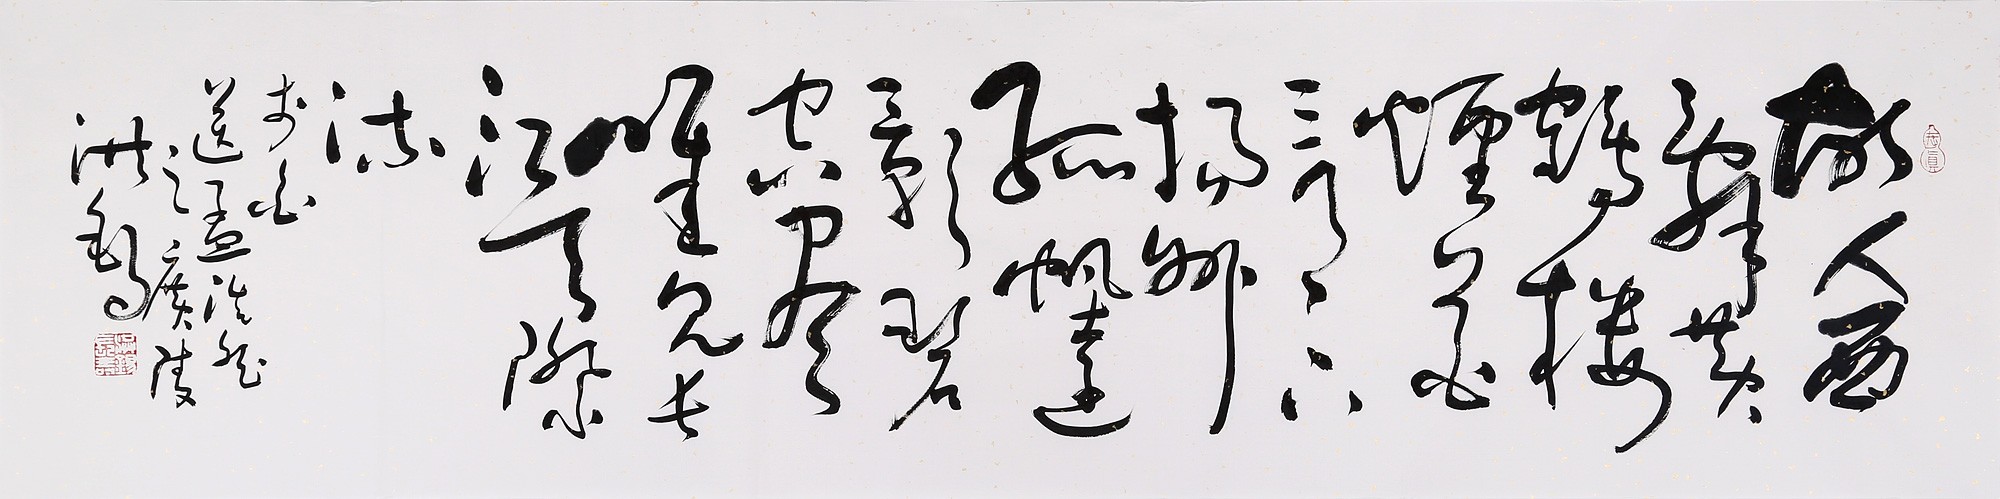 故人西
辭黄
鶴樓
煙花
三月下
揚州
孤帆遠
影碧
空盡
唯見長
江天際
流
李白
送孟浩然
之廣陵
洪